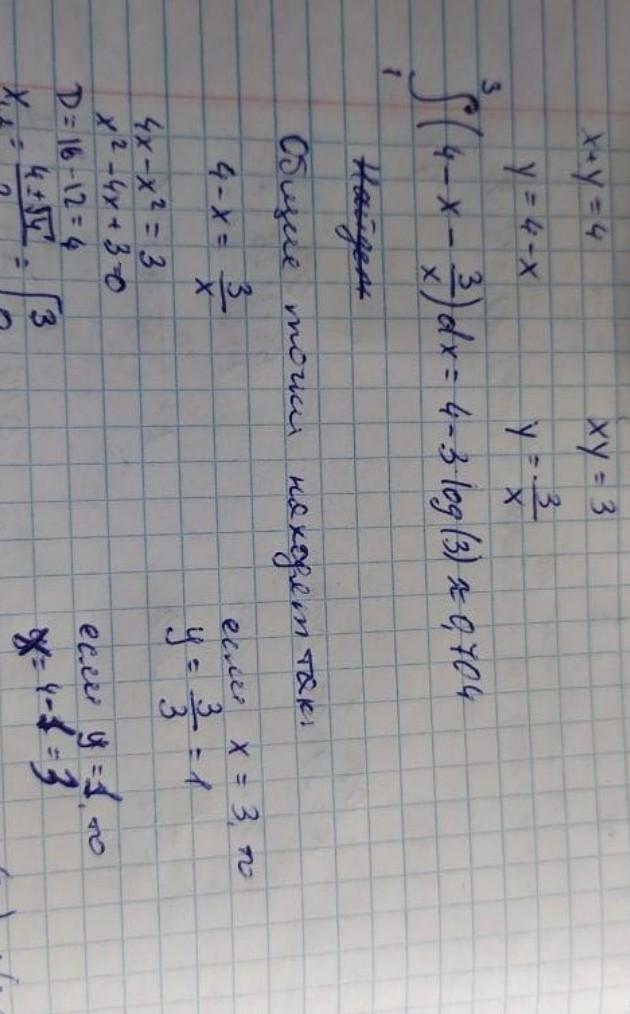 x+y=4 xy=3
y=4-x y=3/x
∫₁³(4-x-3/x)dx=4-3log(3)≈0,704
Найдем
Общие точки находят так:
4-x=3/x
4x-x²=3
x²-4x+3=0
D=16-12=4
x₁,₂=(4±√4)/2=[3
если x=3, то
y=3/3=1
если y=1, то
x=4-1=3